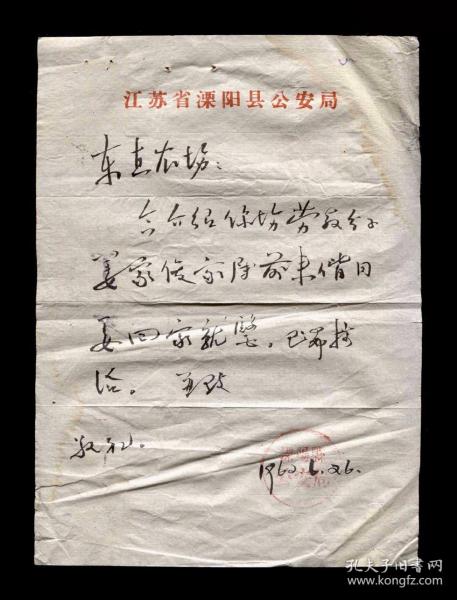 江苏省溧阳县公安局
东直农场：
介绍你场劳教分子
姜家俊家属前来偕同
姜回家就医。已希接
洽。 并致
敬礼。
1962.6.26.
孔夫子旧书网
www.kongfz.com